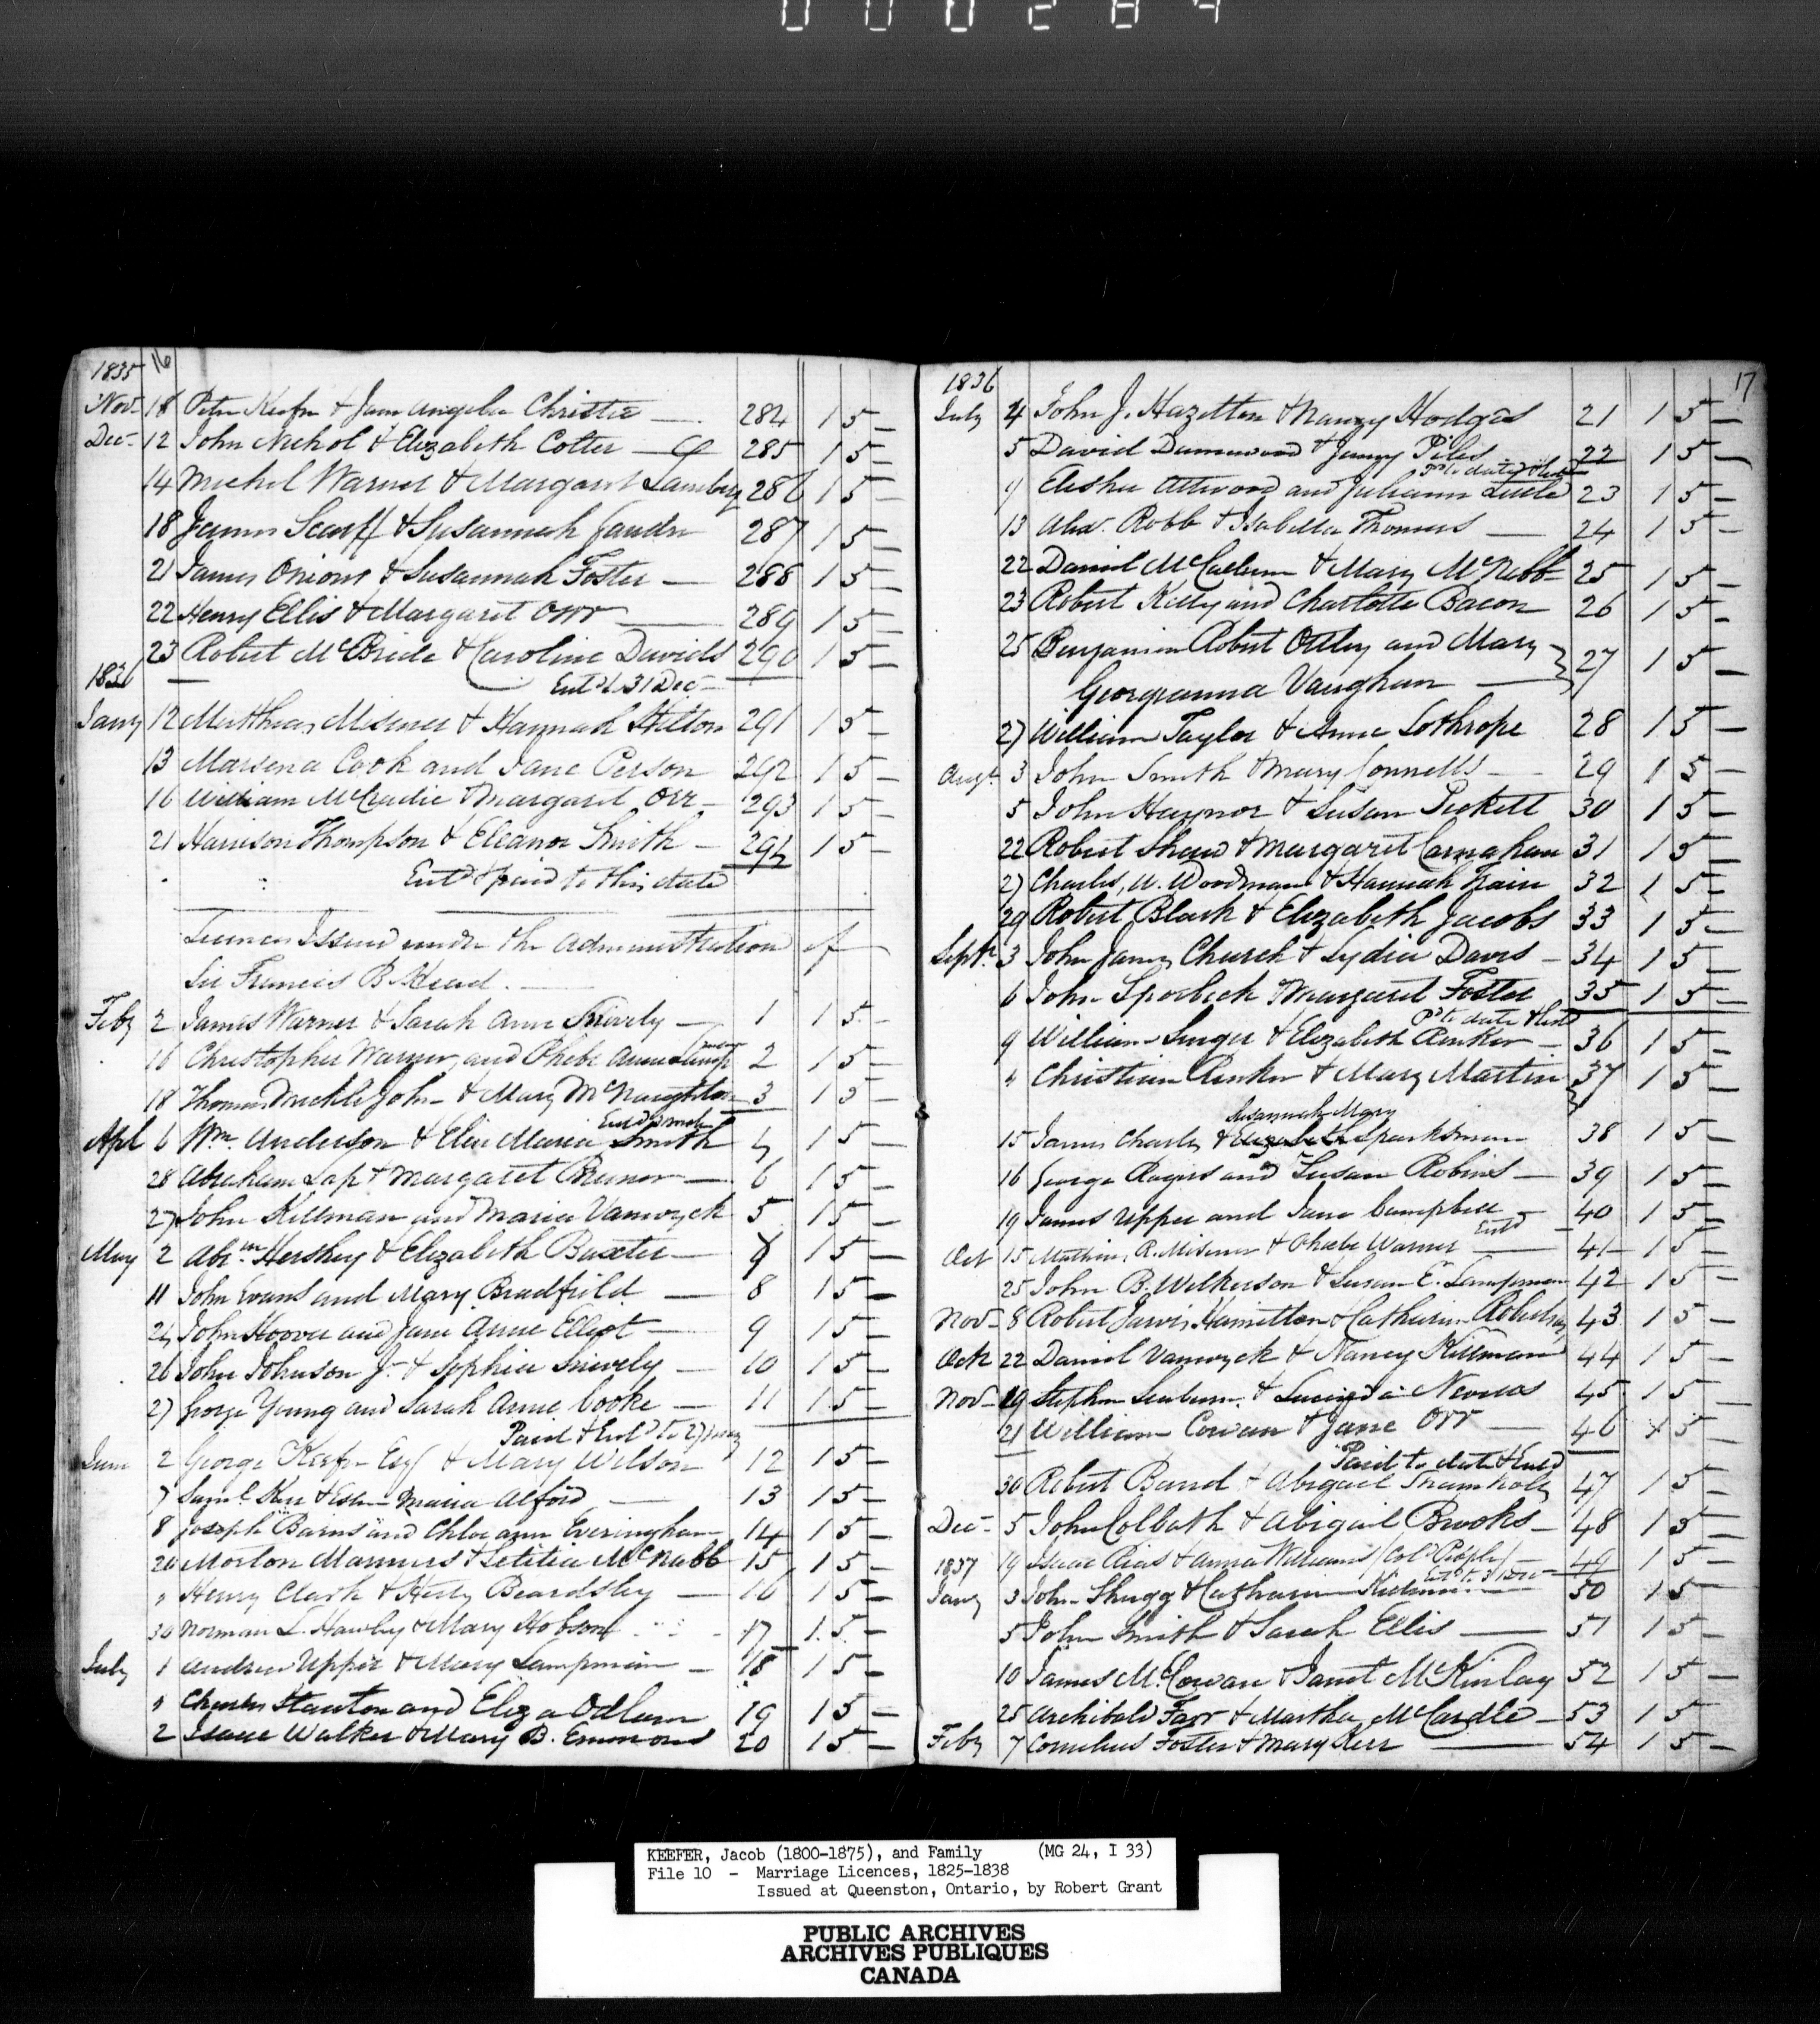 000284
1835 16
Nov 18 Peter Keefer & Jane Angelia Christie — 284 1 5 —
Dec 12 John Nichol & Elizabeth Cotter — 285 1 5 —
14 Michel Warner & Margaret 286 1 5 —
18 James Scarff & Susannah 287 1 5 —
21 James Onions & Susannah Foster — 288 1 5 —
22 Henry Ellis & Margaret Orr — 289 1 5 —
23 Robert McBride & Caroline Davids 290 1 5 —
1836 — Entd 31 Dec —
Jany 12 Matthias Misener & Hannah Hilton 291 1 5 —
13 Marsena Cook and Jane Person 292 1 5 —
16 William McCradie & Margaret Orr — 293 1 5 —
21 Harrison Thompson & Eleanor Smith — 294 1 5 —
Entd & paid to this date
Licences Issued under the Administration of
Sir Francis B Head. —
Feby 2 James Warner & Sarah Ann Snively — 1 1 5 —
16 Christopher Warner and Phebe Anne Lampman 2 1 5 —
18 Thomas MickleJohn & Mary McNaughton 3 1 5 —
Entd
Apl 6 Wm. Anderson & Eliza Maria Smith 4 1 5 —
28 Abraham Lap & Margaret — 6 1 5 —
27 John Killman and Maria Vanwyck 5 1 5 —
May 2 Abrm Hershey & Elizabeth Baxter — 7 1 5 —
11 John Evans and Mary Bradfield — 8 1 5 —
24 John Hoover and Jane Anne Elliot — 9 1 5 —
26 John Johnson Jr. & Sophia Snively — 10 1 5 —
27 George Young and Sarah Anne Cooke — 11 1 5 —
Paid & Entd to 27 May
June 2 George Keefer Esq & Mary Wilson 12 1 5 —
7 Saml. Kerr & Maria Alford — 13 1 5 —
8 Joseph Bains and Chloe ann Everingham 14 1 5 —
20 Morton Manners & Letitia McNabb 15 1 5 —
" Henry Clark & Hesty Beardsley — 16 1 5 —
30 Norman L. Hawley & Mary Hobson 17 1 5 —
July 1 Andrew Upper & Mary Lampman — 18 1 5 —
" Charles Stanton and Eliza Odlum 19 1 5 —
2 Isaac Walker & Mary B. Emmons 20 1 5 —
1836 17
July 4 John J. Hazelton & Nancy Hodges 21 1 5 —
5 David Damewood & Jenny Piles 22 1 5 —
Pd to date & Entd
9 Elisha Attwood and Juliann Little 23 1 5 —
13 Alexr. Robb & Isabella Thomas — 24 1 5 —
22 Daniel McCallum & Mary McNabb 25 1 5 —
23 Robert Kelly and Charlotte Bacon 26 1 5 —
25 Benjamin Robert Ottley and Mary
Georgeanna Vaughan — 27 1 5 —
27 William Taylor & Anne Lothrope 28 1 5 —
Augt. 3 John Smith & Mary Connells — 29 1 5 —
5 John Haynor & Susan Pickett 30 1 5 —
22 Robert Shaw & Margaret Carnahan 31 1 5 —
27 Charles W. Woodman & Hannah 32 1 5 —
29 Robert Black & Elizabeth Jacobs 33 1 5 —
Septr. 3 John James Church & Lydia Davis — 34 1 5 —
6 John Sporbeck & Margaret Foster 35 1 5 —
Pd to date & Entd
9 William Singer & Elizabeth — 36 1 5 —
" Christian & Mary Martin 37 1 5 —
Susannah Mary
15 James Charles & Elizabeth Sparksman 38 1 5 —
16 George Rogers and Susan Robins — 39 1 5 —
19 James Upper and Jane Campbell — 40 1 5 —
Entd
Oct 15 Mathias R. Misener & Phoebe Warner — 41 1 5 —
25 John B. Wilkerson & Susan E. Lampman 42 1 5 —
Nov 8 Robert Jarvis Hamilton & Catharine Robertson 43 1 5 —
Oct 22 Daniel Vanwyck & Nancy Killman 44 1 5 —
Nov 19 Stephen Seaburn & Lucinda Nevills 45 1 5 —
21 William Cowan & Jane Orr — 46 1 5 —
Paid to date & Entd
30 Robert Band & Abigail 47 1 5 —
Dec 5 John Colbath & Abigail Brooks — 48 1 5 —
1837 19 Isaac & Anna Williams (Cold People) — 49 1 5 —
Entd to 31 Dec
Jany 3 John Shugg & Catharine Killman — 50 1 5
5 John Smith & Sarah Ellis — 51 1 5 —
10 James McCowan & Janet McKinlay 52 1 5 —
25 Archibald Farr & Martha McCardle — 53 1 5 —
Feby 7 Cornelius Foster & Mary Kerr — 54 1 5 —
KEEFER, Jacob (1800-1875), and Family (MG 24, I 33)
File 10 - Marriage Licences, 1825-1838
Issued at Queenston, Ontario, by Robert Grant
PUBLIC ARCHIVES
ARCHIVES PUBLIQUES
CANADA